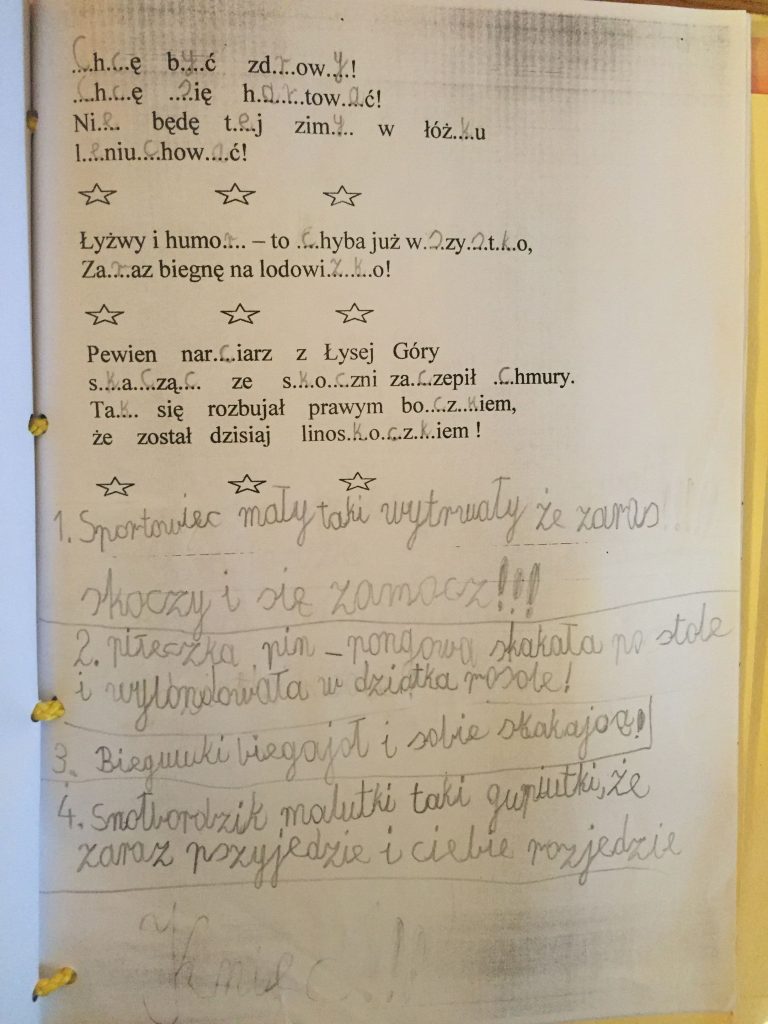 Chcę być zdrowy!
Chcę się hartować!
Nie będę tej zimy w łóżku
leniuchować!
Łyżwy i humor – to chyba już wszystko,
Zaraz biegnę na lodowisko!
Pewien narciarz z Łysej Góry
skacząc ze skoczni zaczepił chmury.
Tak się rozbujał prawym boczkiem,
że został dzisiaj linoskoczkiem !
1. Sportowiec mały taki wytrwały że zaras
skoczy i się zamocz!!!
2. piłeczka pin – pongowa skakała po stole
i wylondowała w dziatka rosole!
3. Bieguwki biegajoł i sobie skakajoą!
4. Snołbordzik malutki taki gupiutki, że
zaraz pszyjedzie i ciebie rozjedzie
Koniec!!